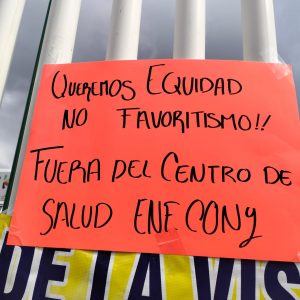 QUEREMOS EQUIDAD
NO FAVORITISMO!!
FUERA DEL CENTRO DE
SALUD ENF. CONY
DE LA VIS